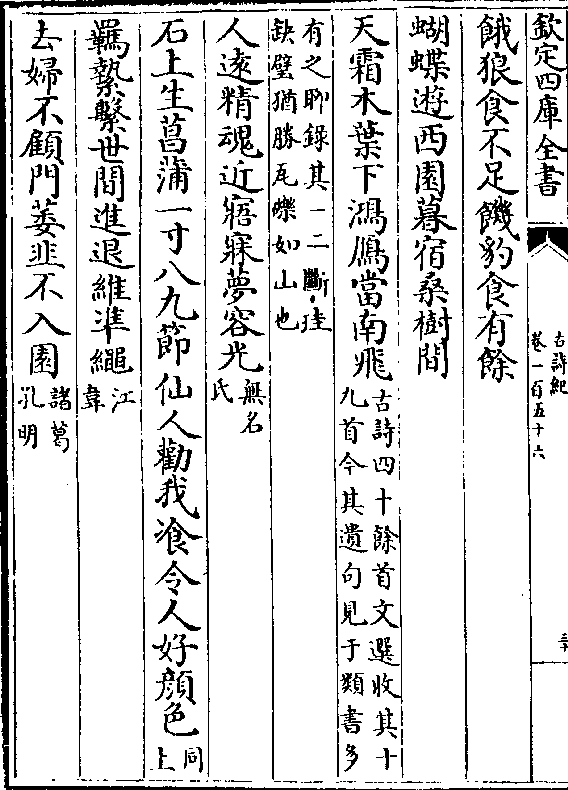 欽定四庫全書
古詩紀
卷一百五十六
餓狼食不足饑豹食有餘
蝴蝶遊西園暮宿桑樹間
天霜木葉下鴻鴈當南飛古詩四十餘首文選收其十
九首今其遺句見于類書多
有之聊錄其一二斷珪
缺璧猶勝瓦礫如山也
人逺精魂近寤寐夢容光無名
氏
石上生菖蒲一寸八九節仙人勸我飡令人好顔色同
上
羈縶繫世間進退維凖繩江
韋
去婦不顧門萎韭不入園諸葛
孔明